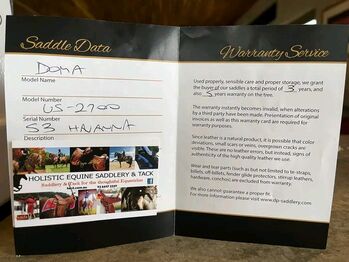 Saddle Data
DOMA
Model Name
US-2700
Model Number
Serial Number
S3 HAVANNA
Description
HOLISTIC EQUINE SADDLERY & TACK
Saddlery & Tack for the thoughtful Equestrian
Warranty Service
Used properly, sensible care and proper storage, we grant
the buyer of our saddles a total period of 3 years, and
also 5 years warranty on the tree.
The warranty instantly becomes invalid, when alterations
by a third party have been made. Presentation of original
invoices as well as this warranty card are required for
warranty purposes.
Since leather is a natural product, it is possible that color
deviations, small scars or veins, overgrown cracks are
visible. These are no leather errors, but instead, signs of
authenticity of the high quality leather we use.
Wear and tear parts (such as but not limited to tie-straps,
billets, off-billets, fender glide protectors, stirrup leathers,
hardware, conchos) are excluded from warranty.
We also cannot guarantee a proper fit.
For more information please visit www.dp-saddlery.com